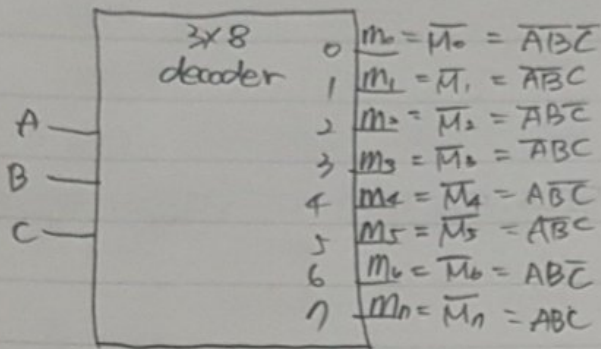 3×8
decoder
A
B
C
0 m₀ = M̅₀ = A̅B̅C̅
1 m₁ = M̅₁ = A̅B̅C
2 m₂ = M̅₂ = A̅BC̅
3 m₃ = M̅₃ = A̅BC
4 m₄ = M̅₄ = AB̅C̅
5 m₅ = M̅₅ = A̅B̅C
6 m₆ = M̅₆ = ABC̅
7 m₇ = M̅₇ = ABC